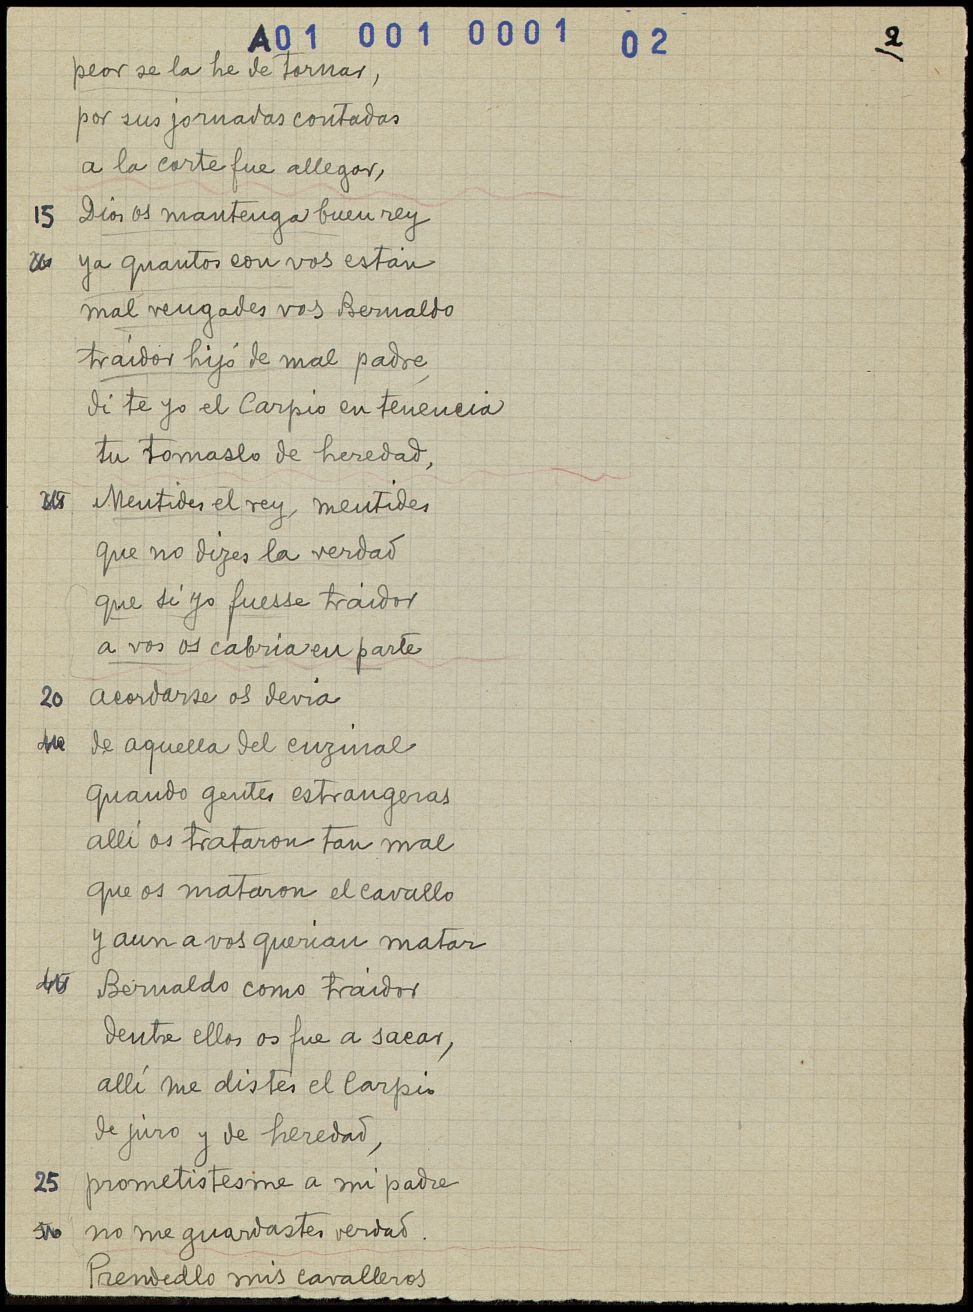 A01 001 0001 02
2
peor se la he de tornar,
por sus jornadas contadas
a la corte fue allegar,
15 Dios os mantenga buen rey
ya quantos con vos están
mal vengades vos Bernaldo
traidor hijo de mal padre,
di te yo el Carpio en tenencia
tu tomaslo de heredad,
Mentides el rey, mentides
que no dizes la verdad
que si yo fuesse traidor
a vos os cabria en parte
20 acordarse os devia
de aquella del enzinal
quando gentes estrangeras
allí os trataron tan mal
que os mataron el cavallo
y aun a vos querian matar
Bernaldo como traidor
dentre ellos os fue a sacar,
allí me distes el Carpio
de juro y de heredad,
25 prometistesme a mi padre
no me guardastes verdad.
Prendedlo mis cavalleros